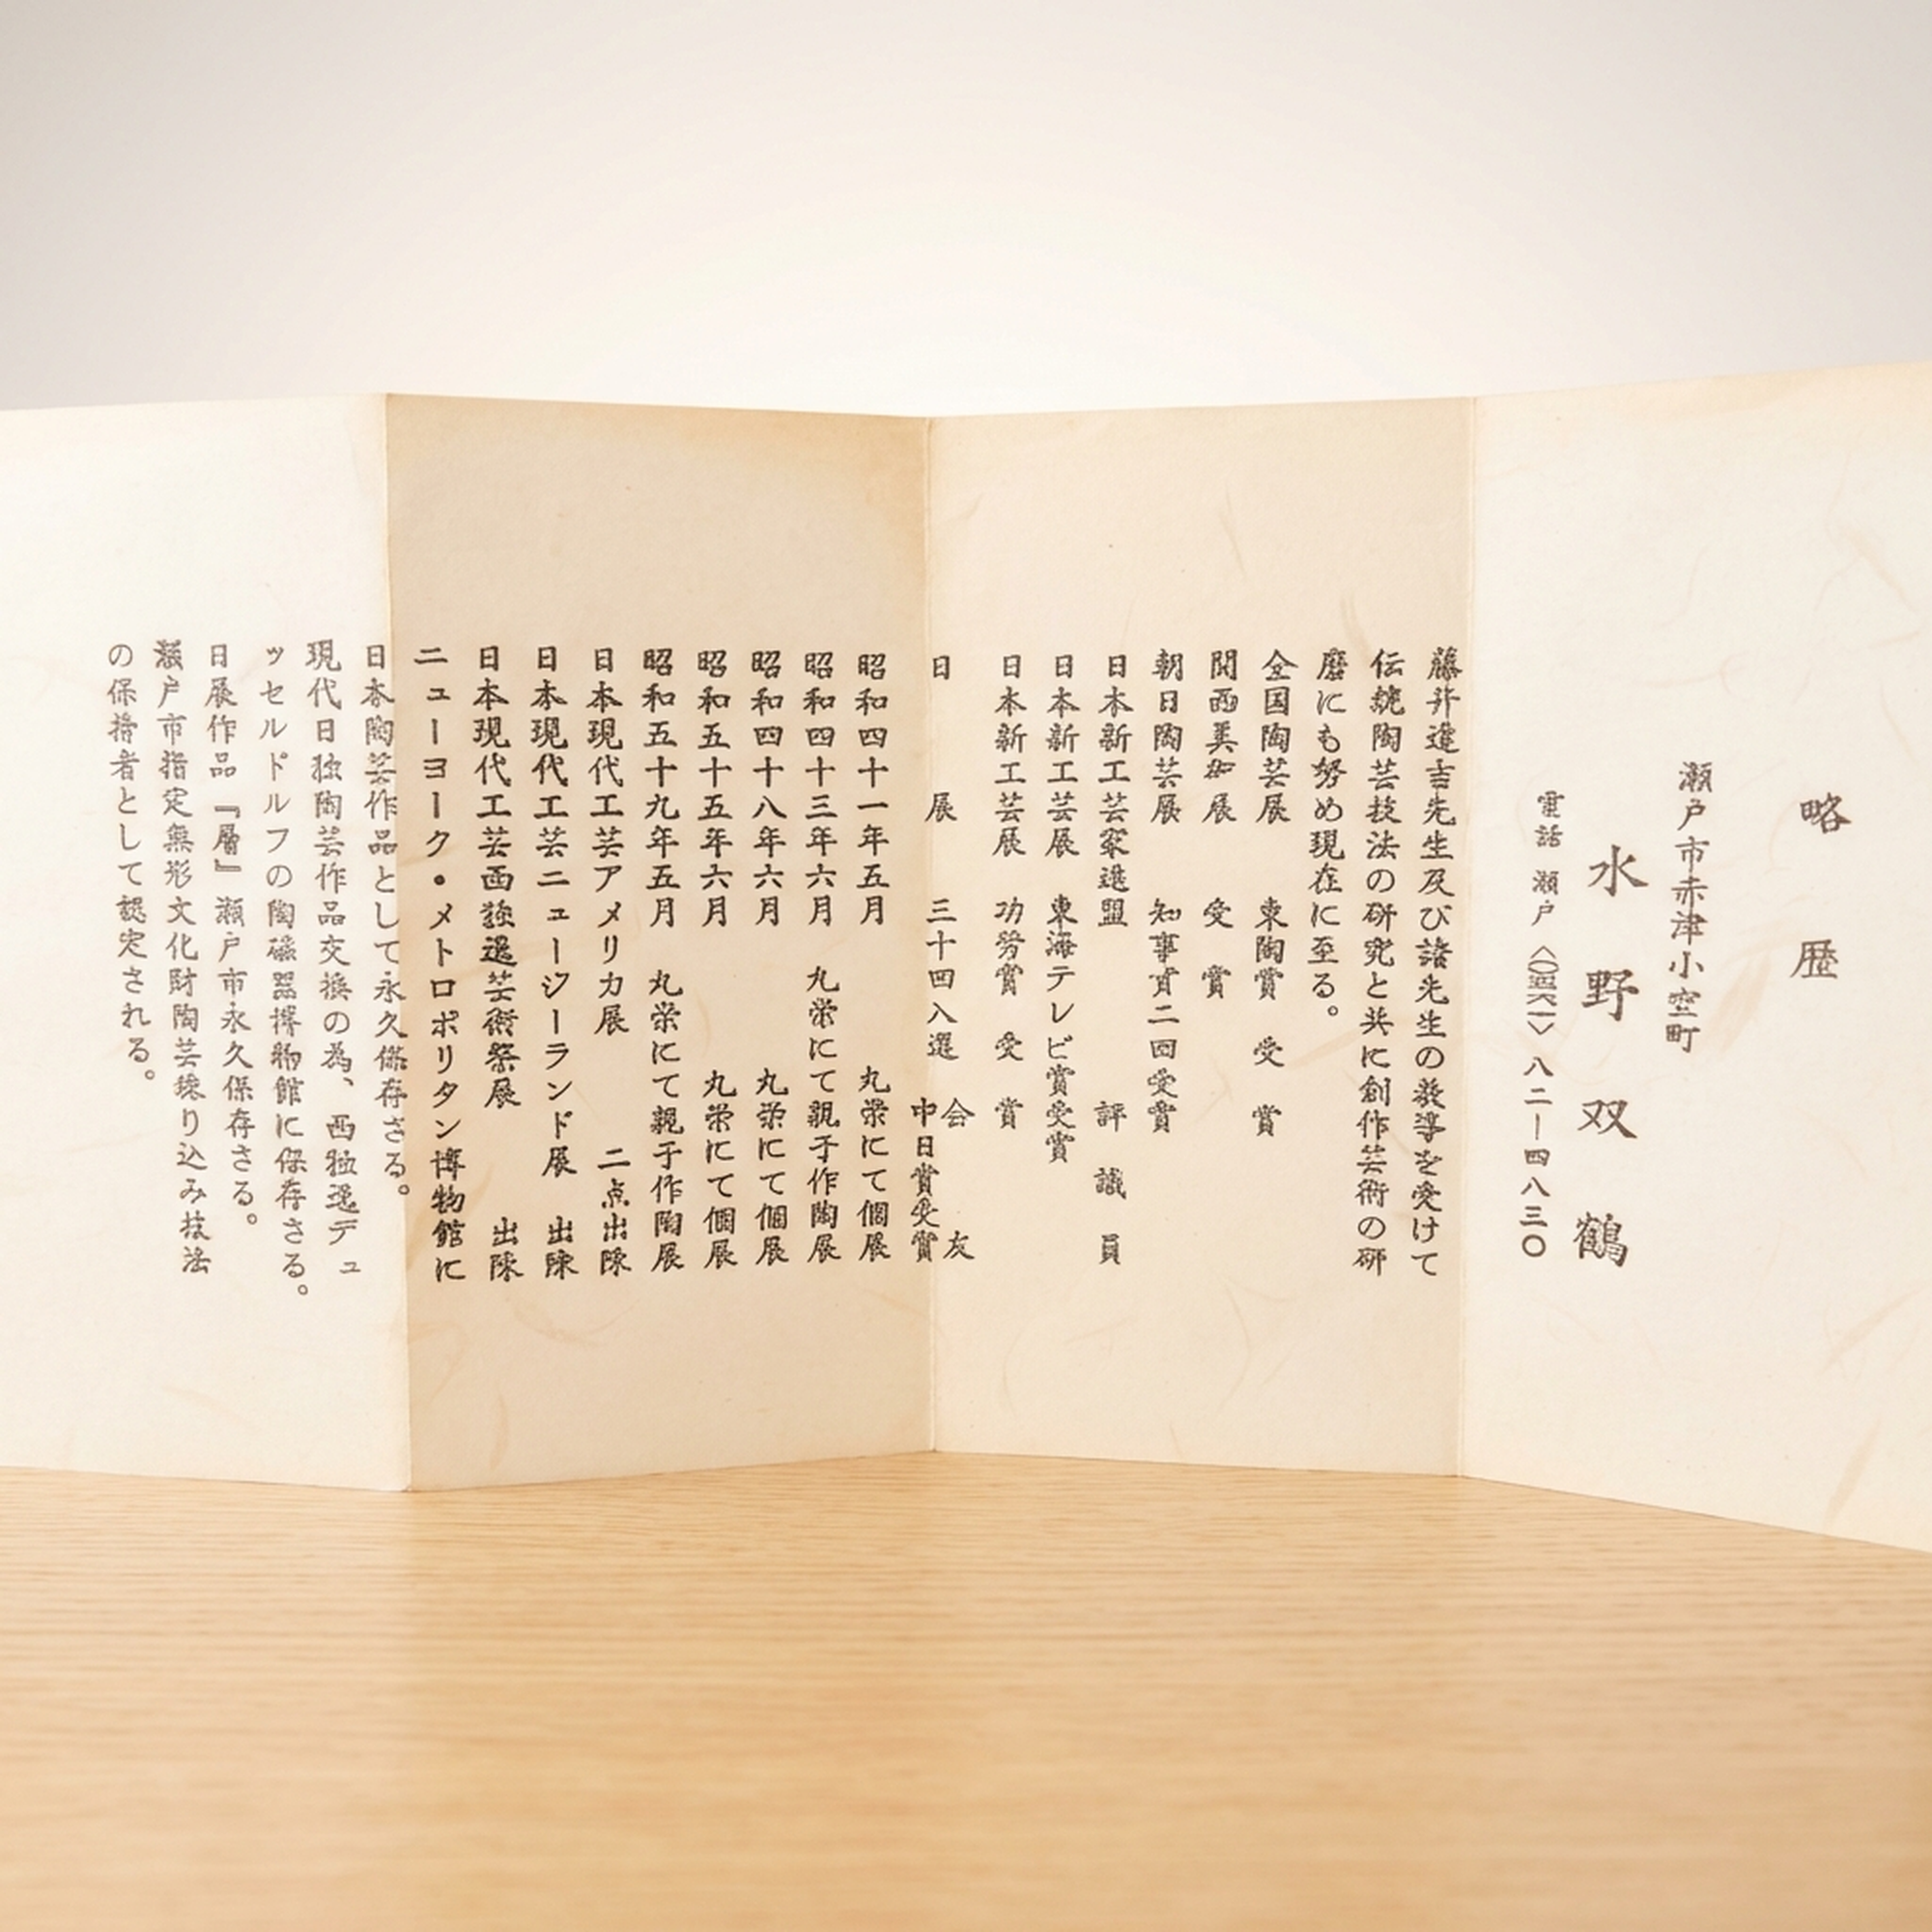 略歴
瀬戸市赤津小空町
水野双鶴
電話 瀬戸 八二―四八三〇
藤井達吉先生及び諸先生の教導を受けて
伝統陶芸技法の研究と共に創作芸術の研
磨にも努め現在に至る。
全国陶芸展 東陶賞 受賞
関西美術展 受賞
朝日陶芸展 知事賞二回受賞
日本新工芸家連盟 評議員
日本新工芸展 東海テレビ賞受賞
日本新工芸展 功労賞 受賞
日展 三十四入選 会友
中日賞受賞
昭和四十一年五月 丸栄にて個展
昭和四十三年六月 丸栄にて親子作陶展
昭和四十八年六月 丸栄にて個展
昭和五十五年六月 丸栄にて個展
昭和五十九年五月 丸栄にて親子作陶展
日本現代工芸アメリカ展 二点出陳
日本現代工芸ニュージーランド展 出陳
日本現代工芸西独巡芸術祭展 出陳
ニューヨーク・メトロポリタン博物館に
日本陶芸作品として永久保存さる。
現代日独陶芸作品交換の為、西独逸デュ
ッセルドルフの陶磁器博物館に保存さる。
日展作品『層』瀬戸市永久保存さる。
瀬戸市指定無形文化財陶芸練り込み技法
の保持者として認定される。